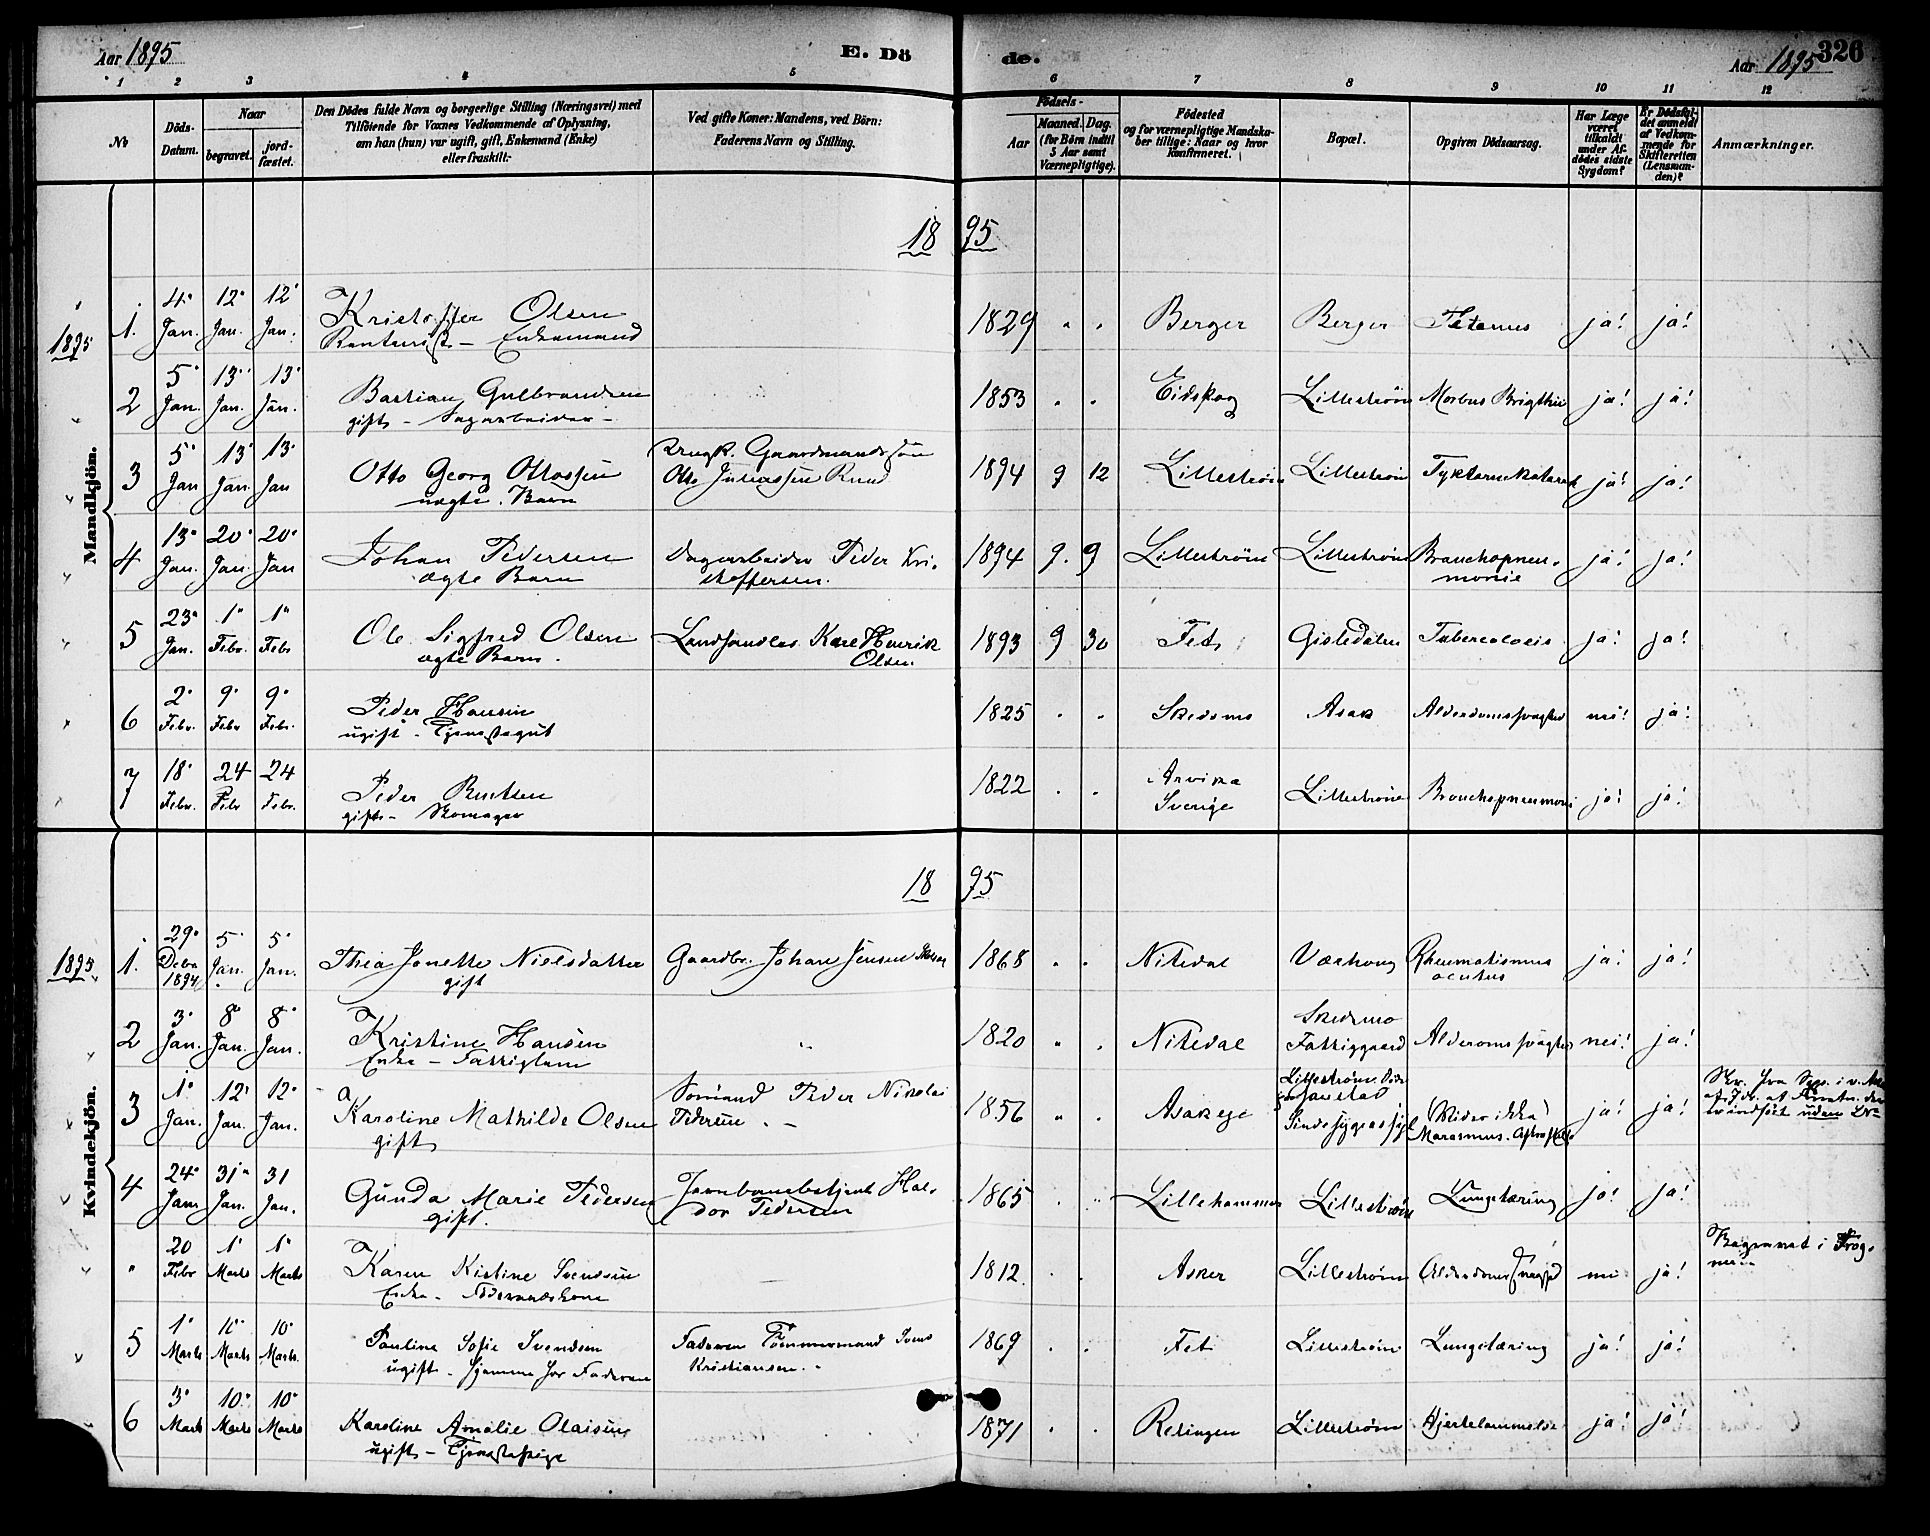 Aar 1895 E. Dö de. Aar 1895 326
1 2 3 4 5 6 7 8 9 10 11 12
No
Döds-Datum.
Naar
begravet.
jordfæstet.
Den Dödes fulde Navn og borgerlige Stilling (Næringsvei) med
Tilföiende for Voxnes Vedkommende af Oplysning,
om han (hun) var ugift, gift, Enkemand (Enke)
eller fraskilt:
Ved gifte Koner: Mandens, ved Börn:
Faderens Navn og Stilling.
Födsels-
Aar
Maaned. Dag.
(for Börn indtil
5 Aar samt
Værnepligtige).
Födested
og for værnepligtige Mandska-
ber tillige: Naar og hvor
konfirmeret.
Bopæl.
Opgiven Dödsaarsag.
Har Læge
været
tilkaldt
under Af-
dödes sidste
Sygdom?
Er Dödsfal-
det anmeldt
af Vedkom-
mende for
Skifteretten
(Lensman-
den)?
Anmærkninger.
Mandkjön.
18 95
1895
1. 4 Jan. 12 Jan. 12 Jan. Kristoffer Olsen 1829 " " Berger Berger Tetanus ja! ja!
Enkemand
2 5 Jan. 13 Jan. 13 Jan. Bastian Gulbrandsen 1853 " " Eidskog Lillestrøm Morbus Brigthii ja! ja!
gift - Sagarbeider -
3 5 Jan 13 Jan. 13 Jan Otto Georg Ottossen Gaardmandssøn Otto 1894 9 12 Lillestrøm Lillestrøm Tyktarmskatarrh ja! ja!
uægte Barn
4 13 Jan. 20 Jan. 20 Jan Johan Pedersen Dagarbeider Peder Kri- 1894 9. 9 Lillestrøm Lillestrøm Bronchopneu- ja! ja!
ægte Barn stoffersen. monie
5 23 Jan. 1 Febr. 1 Febr Ole Sigfred Olsen Karl Henrik 1893 9 30 Fet Gisledalen Tuberculosis ja! ja!
ægte Barn. Olsen.
6 2 Febr. 9 Febr 9 Febr. Peder Hansen 1825 " " Skedsmo Asak Alderdomssvaghed nei! ja!
ugift - Tjenestegut
7 18 Febr. 24 Febr 24 Febr. Peder Bentsen 1822 " " Arvika Lillestrøm Bronchopneumoni ja! ja!
gift - Skomager Sverige
Kvindekjön.
18 95
1895
1. 29 Debr. 1894 5 Jan. 5 Jan. Thea Jonette Nielsdatter Gaardbr. Johan Jensen 1868 " " Nitedal Værhoug Rheumatismus ja! ja!
gift acutus
2 3 Jan. 8 Jan. 8 Jan. Kristine Hansen " 1820 " " Nitedal Skedsmo Alderomssvaghed nei! ja!
Enke - Fattiglem Fattiggaard
3 1 Jan. 12 Jan. 12 Jan. Karoline Mathilde Olsen Sømand Peder Nikolai 1856 " " Asakeje Lillestrøm ja! ja!
gift Pedersen Sindssygeasyl Marasmus.
4 24 Jan 31 Jan. 31 Jan. Gunda Marie Pedersen Jernbanebetjent Hal- 1865 " " Lillehammer Lillestrøm Lungetæring ja! ja!
gift. dor Pedersen
" 20 Febr 1 Marts 1 Marts Karen Kistine Svendsen 1812 Asker Lillestrøm nei ja! Begravet i Frog-
Enke - ner
5 1 Marts 10 Marts 10 Marts. Pauline Sofie Svendsen Faderen Tømmermand Svend 1869 Fet Lillestrøm Lungetæring ja! ja!
ugift - hjemme hos Faderen Kristiansen.
6 3 Marts 10 Marts 10 Marts Karoline Amalie Olaisen 1871 " " Relingen Lillestrøm Hjertelammelse ja! ja!
ugift - Tjenestepige